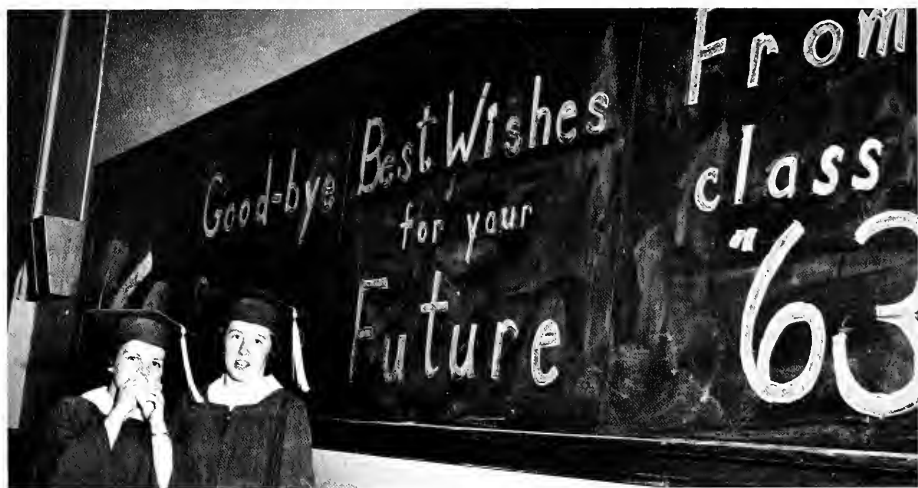 Good-bye
Best Wishes
for your
Future
From
class
"63